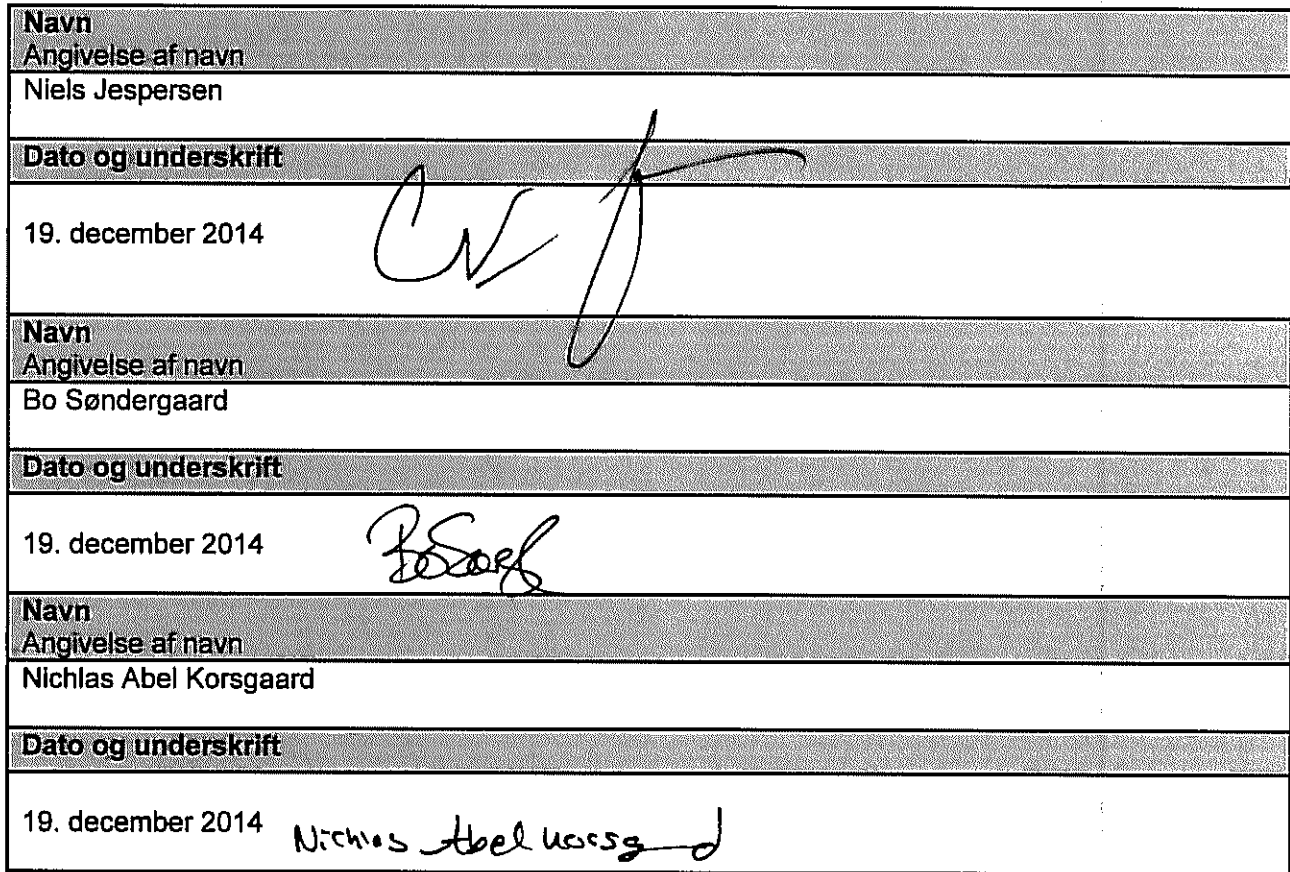 Navn
Angivelse af navn
Niels Jespersen
Dato og underskrift
19. december 2014
Navn
Angivelse af navn
Bo Søndergaard
Dato og underskrift
19. december 2014
Navn
Angivelse af navn
Nichlas Abel Korsgaard
Dato og underskrift
19. december 2014 Nichlas Abel Korsgaard